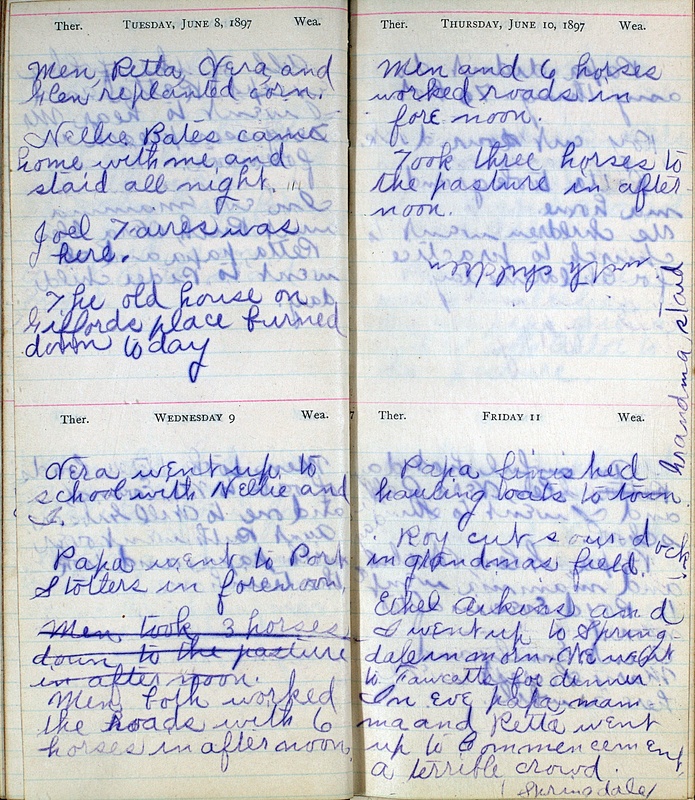 Ther. TUESDAY, JUNE 8, 1897 Wea.
Men Retta Vera and
Glen replanted corn.
Nellie Bates came
home with me and
staid all night.
Joel Tavres was
here.
The old house on
Giffords place burned
down today
Ther. WEDNESDAY 9 Wea.
Vera went up to
school with Nellie and
I.
Papa went to Port
Stotlers in forenoon.
Men took 3 horses
down to the pasture
in afternoon.
Men both worked
the roads with 6
horses in afternoon.
Ther. THURSDAY, JUNE 10, 1897 Wea.
Men and 6 horses
worked roads in
fore noon.
Took three horses to
the pasture in after
noon.
Ther. FRIDAY 11 Wea.
Papa finished
hauling oats to town
Roy cut sour dock
in grandmas field.
Ethel Arkins and
I went up to Spring-
dale in morn. We went
to Fawcetts for dinner
In eve papa mam
ma and Retta went
up to Commencement,
a terrible crowd.
Springdale
Grandma staid
with children